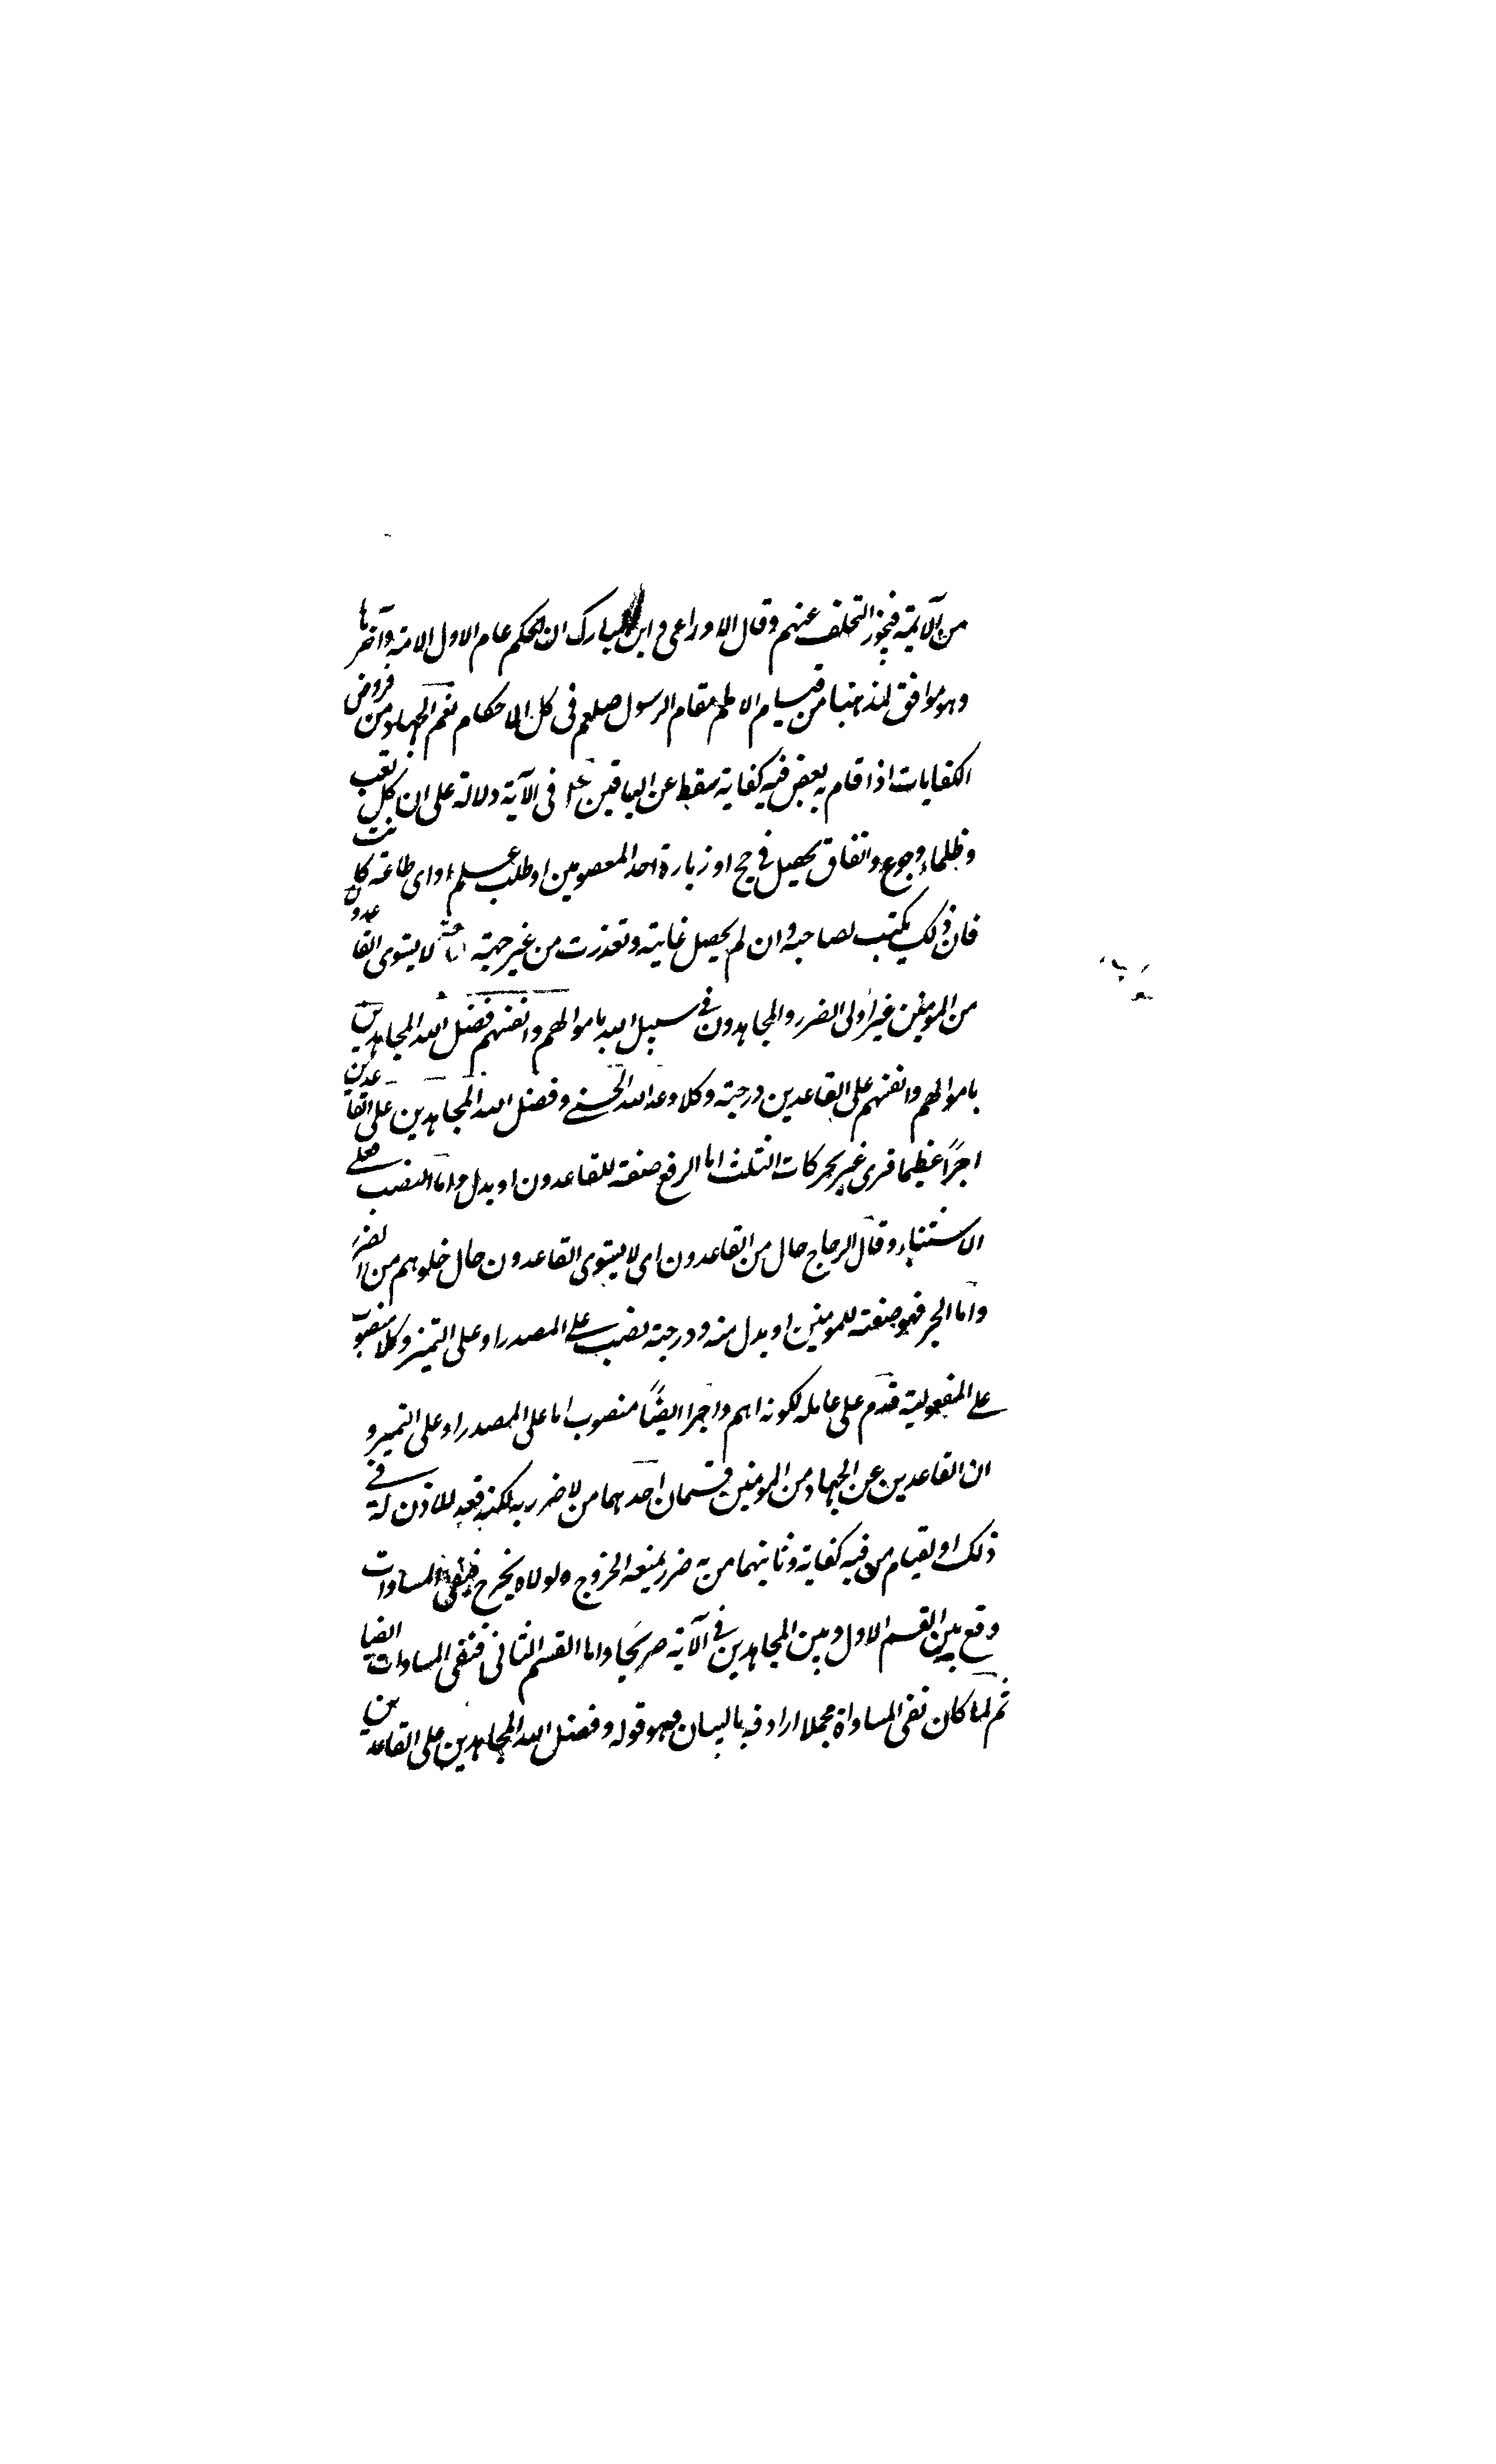 من الآئمة فيجوز التخلف عنهم وقال الاوزاعى و ابن المبارك ان الحكم عام لاول الامة وآخرها
وهو موافق لمذهبنا من قيام الامام مقام الرسول صلعم فى كل الاحكام نعم الجهاد من فروض
الكفايات اذا قام به بعض فيه كفاية سقط عن الباقين فى الآية دلالة على ان كل تعب
وظماء وجوع وانفاق يحصل فى حج او زيارة احد المعصومين او طلب علم او اى طاعة كانت
فان ذلك يكتب لصاحبه وان لم يحصل غايته وتعذرت من غير جهته لا يستوى القاعدون
من المومنين غير اولى الضرر والمجاهدون فى سبيل الله باموالهم وانفسهم فضل الله المجاهدين
باموالهم وانفسهم على القاعدين درجة وكلا وعد الله الحسنى وفضل الله المجاهدين على القاعدين
اجرًا عظيما قرى غير بحركات الثلث اما الرفع صفة للقاعدون او بدل واما النصب فعلى
الاستثناء وقال الزجاج حال من القاعدون اى لا يستوى القاعدون حال خلوهم من الضرر
واما الجر فهو صفة للمومنين او بدل منه ودرجة نصب على المصدر او على التميز وكلا منصوب
على المفعولية قدم على عامله لكونه اهم واجرا ايضًا منصوب اما على المصدر او على التميز و
ان القاعدين عن الجهاد من المومنين قسمان احدهما من لا ضرر به لكنه قعد للاذن له فى
ذلك او لقيام من فيه كفاية وثانيهما من به ضرر يمنعه الخروج ولولاه يخرج فنفى المساوات
وقع بين القسم الاول وبين المجاهدين فى الآية صريحا واما القسم الثانى فنفى المساوات ايضا
ثم لما كان نفى المساواة مجملا اردفه بالبيان وهو قوله وفضل الله المجاهدين على القاعدين